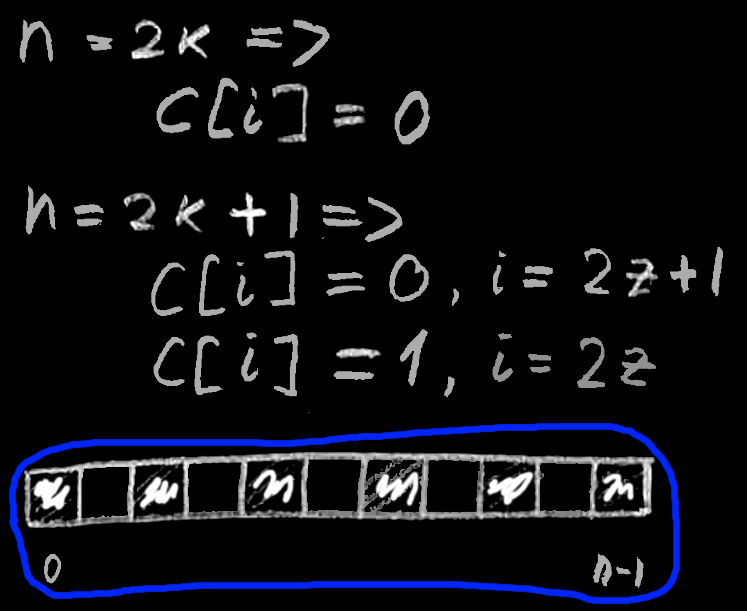 n = 2k =>
C[i] = 0
n = 2k + 1 =>
C[i] = 0, i = 2z + 1
C[i] = 1, i = 2z
0 n-1